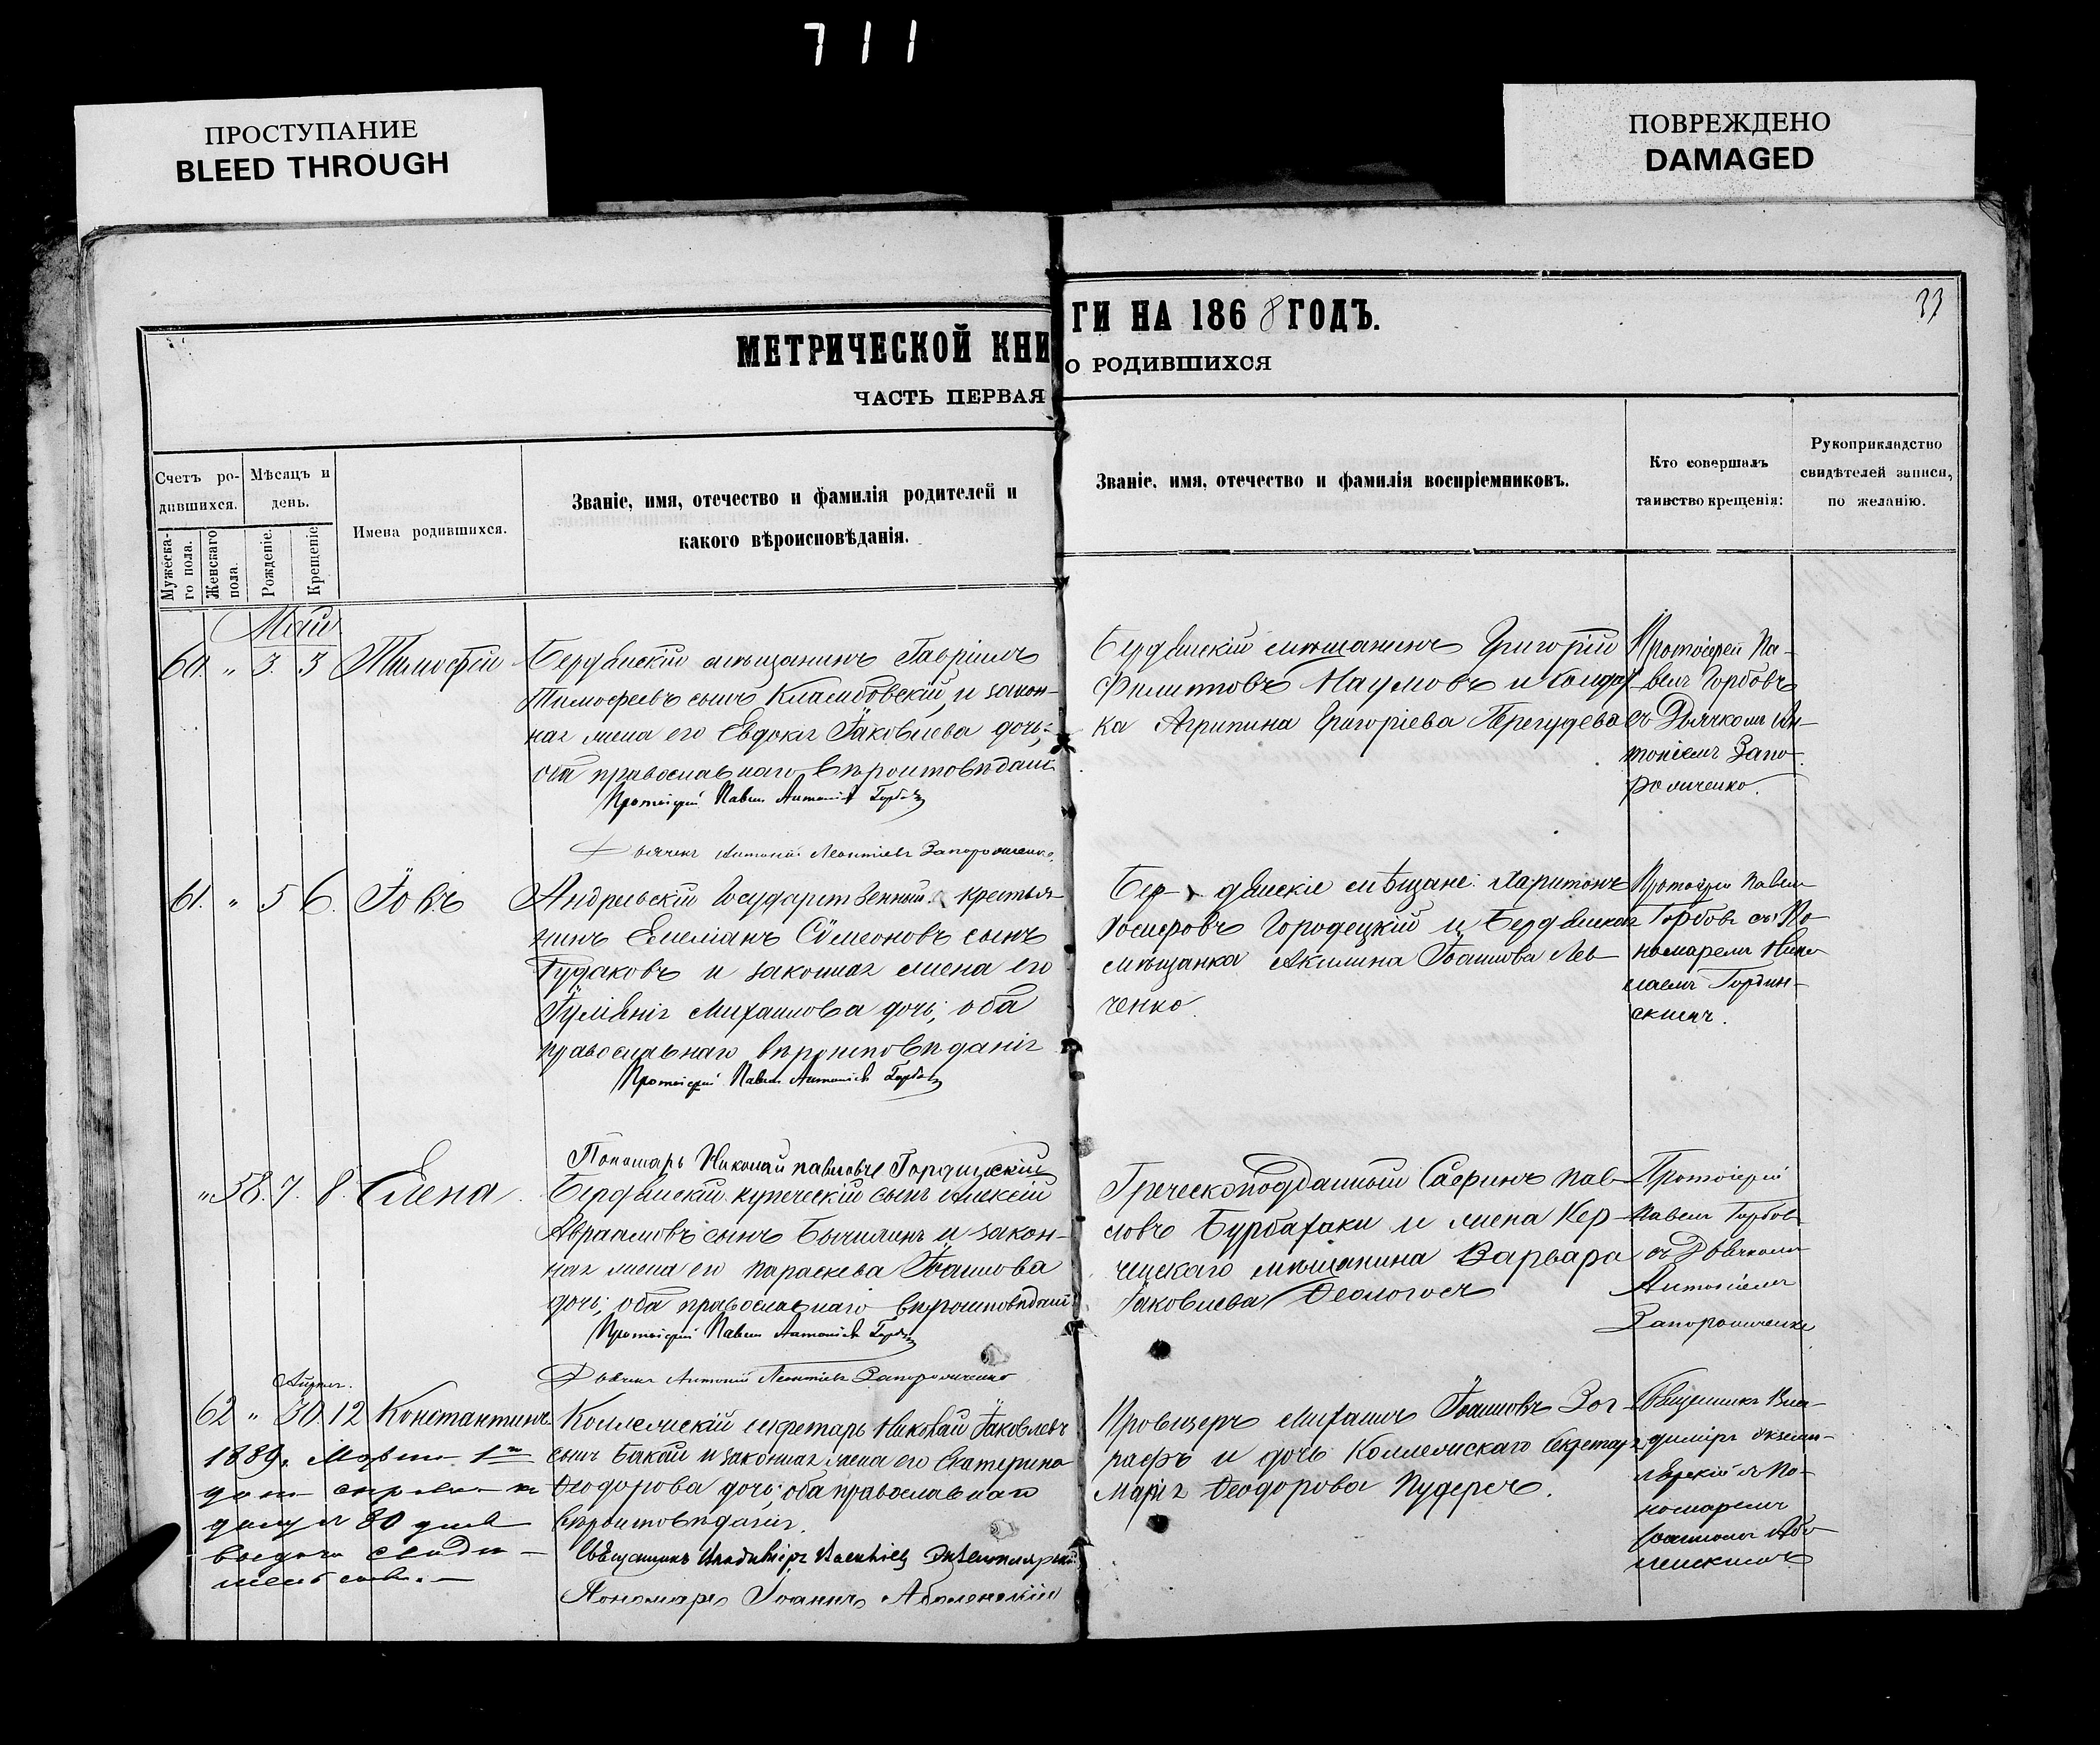 711
ПРОСТУПАНИЕ
BLEED THROUGH
ПОВРЕЖДЕНО
DAMAGED
33
МЕТРИЧЕСКОЙ КНИ
ГИ НА 1868 ГОДЪ.
ЧАСТЬ ПЕРВАЯ
О РОДИВШИХСЯ
Счетъ ро-
дившихся.
Мужеска-
го пола.
Женскаго
пола.
Мѣсяцъ и
день.
Рожденіе.
Крещеніе
Имена родившихся.
Званіе, имя, отечество и фамилія родителей и
какого вѣроисповѣданія.
Званіе, имя, отечество и фамилія воспріемниковъ.
Кто совершалъ
таинство крещенія:
Рукоприкладство
свидѣтелей записи,
по желанію.
Май
60. " 3. 3 Тимофей
Бердянскій мѣщанинъ Гавріилъ
Тимофеевъ сынъ и закон-
ная жена его Евдокія Іаковлева дочь;
оба православнаго вѣроисповѣданія
Протоіерей Павелъ Антоніевъ Горбовъ
Дьячекъ Антоній Леонтіевъ Запорожченко.
Бердянскій мѣщанинъ Григорій
Филиповъ Наумовъ и
ка Агрипина Григоріева
Протоіерей Па-
велъ Горбовъ
съ Дьячкомъ Ан-
тоніемъ Запо-
рожченко.
61. " 5 6. Іовъ
Государственный крестья-
нинъ Емеліанъ Сѵмеоновъ сынъ
и законная жена его
Іуліянія Михаилова дочь; оба
православнаго вѣроисповѣданія
Протоіерей Павелъ Антоніевъ Горбовъ
Пономарь Николай Павловъ
Бер- дянскіе мѣщане: Харитонъ
Іосифовъ Городецкій и Бердянская
мѣщанка Акилина Іоаннова Лев-
ченко.
Протоіерей Павелъ
Горбовъ съ По-
номаремъ Нико
лаемъ
скимъ.
" 58. 7. 8. Елена
Бердянскій купеческій сынъ Алексій
Авраамовъ сынъ и закон-
ная жена его Параскева Іоаннова
дочь; оба православнаго вѣроисповѣданія
Протоіерей Павелъ Антоніевъ Горбовъ
Дьячекъ Антоній Леонтіевъ Запорожченко
Греческоподданный Сафинъ Пав-
ловъ и жена Кер-
ченскаго мѣщанина Варвара
Іаковлева
Протоіерей
Павелъ Горбовъ
съ Дьячкомъ
Антоніемъ
Запорожченко
Апрель.
62 " 30 12 Константинъ
1889. 1
20
Коллежскій секретарь Николай Іаковлевъ
сынъ Бакай и законная жена его Екатерина
Ѳеодорова дочь; оба православнаго
вѣроисповѣданія.
Священникъ Владиміръ Экземплярскій
Пономарь Іоаннъ
Провизоръ Михаилъ Іоанновъ Зог-
рафъ и дочь Коллежскаго Секретаря
Марія Ѳеодорова
Священникъ Вла-
диміръ Экземп-
лярскій съ По-
номаремъ
Іоанномъ